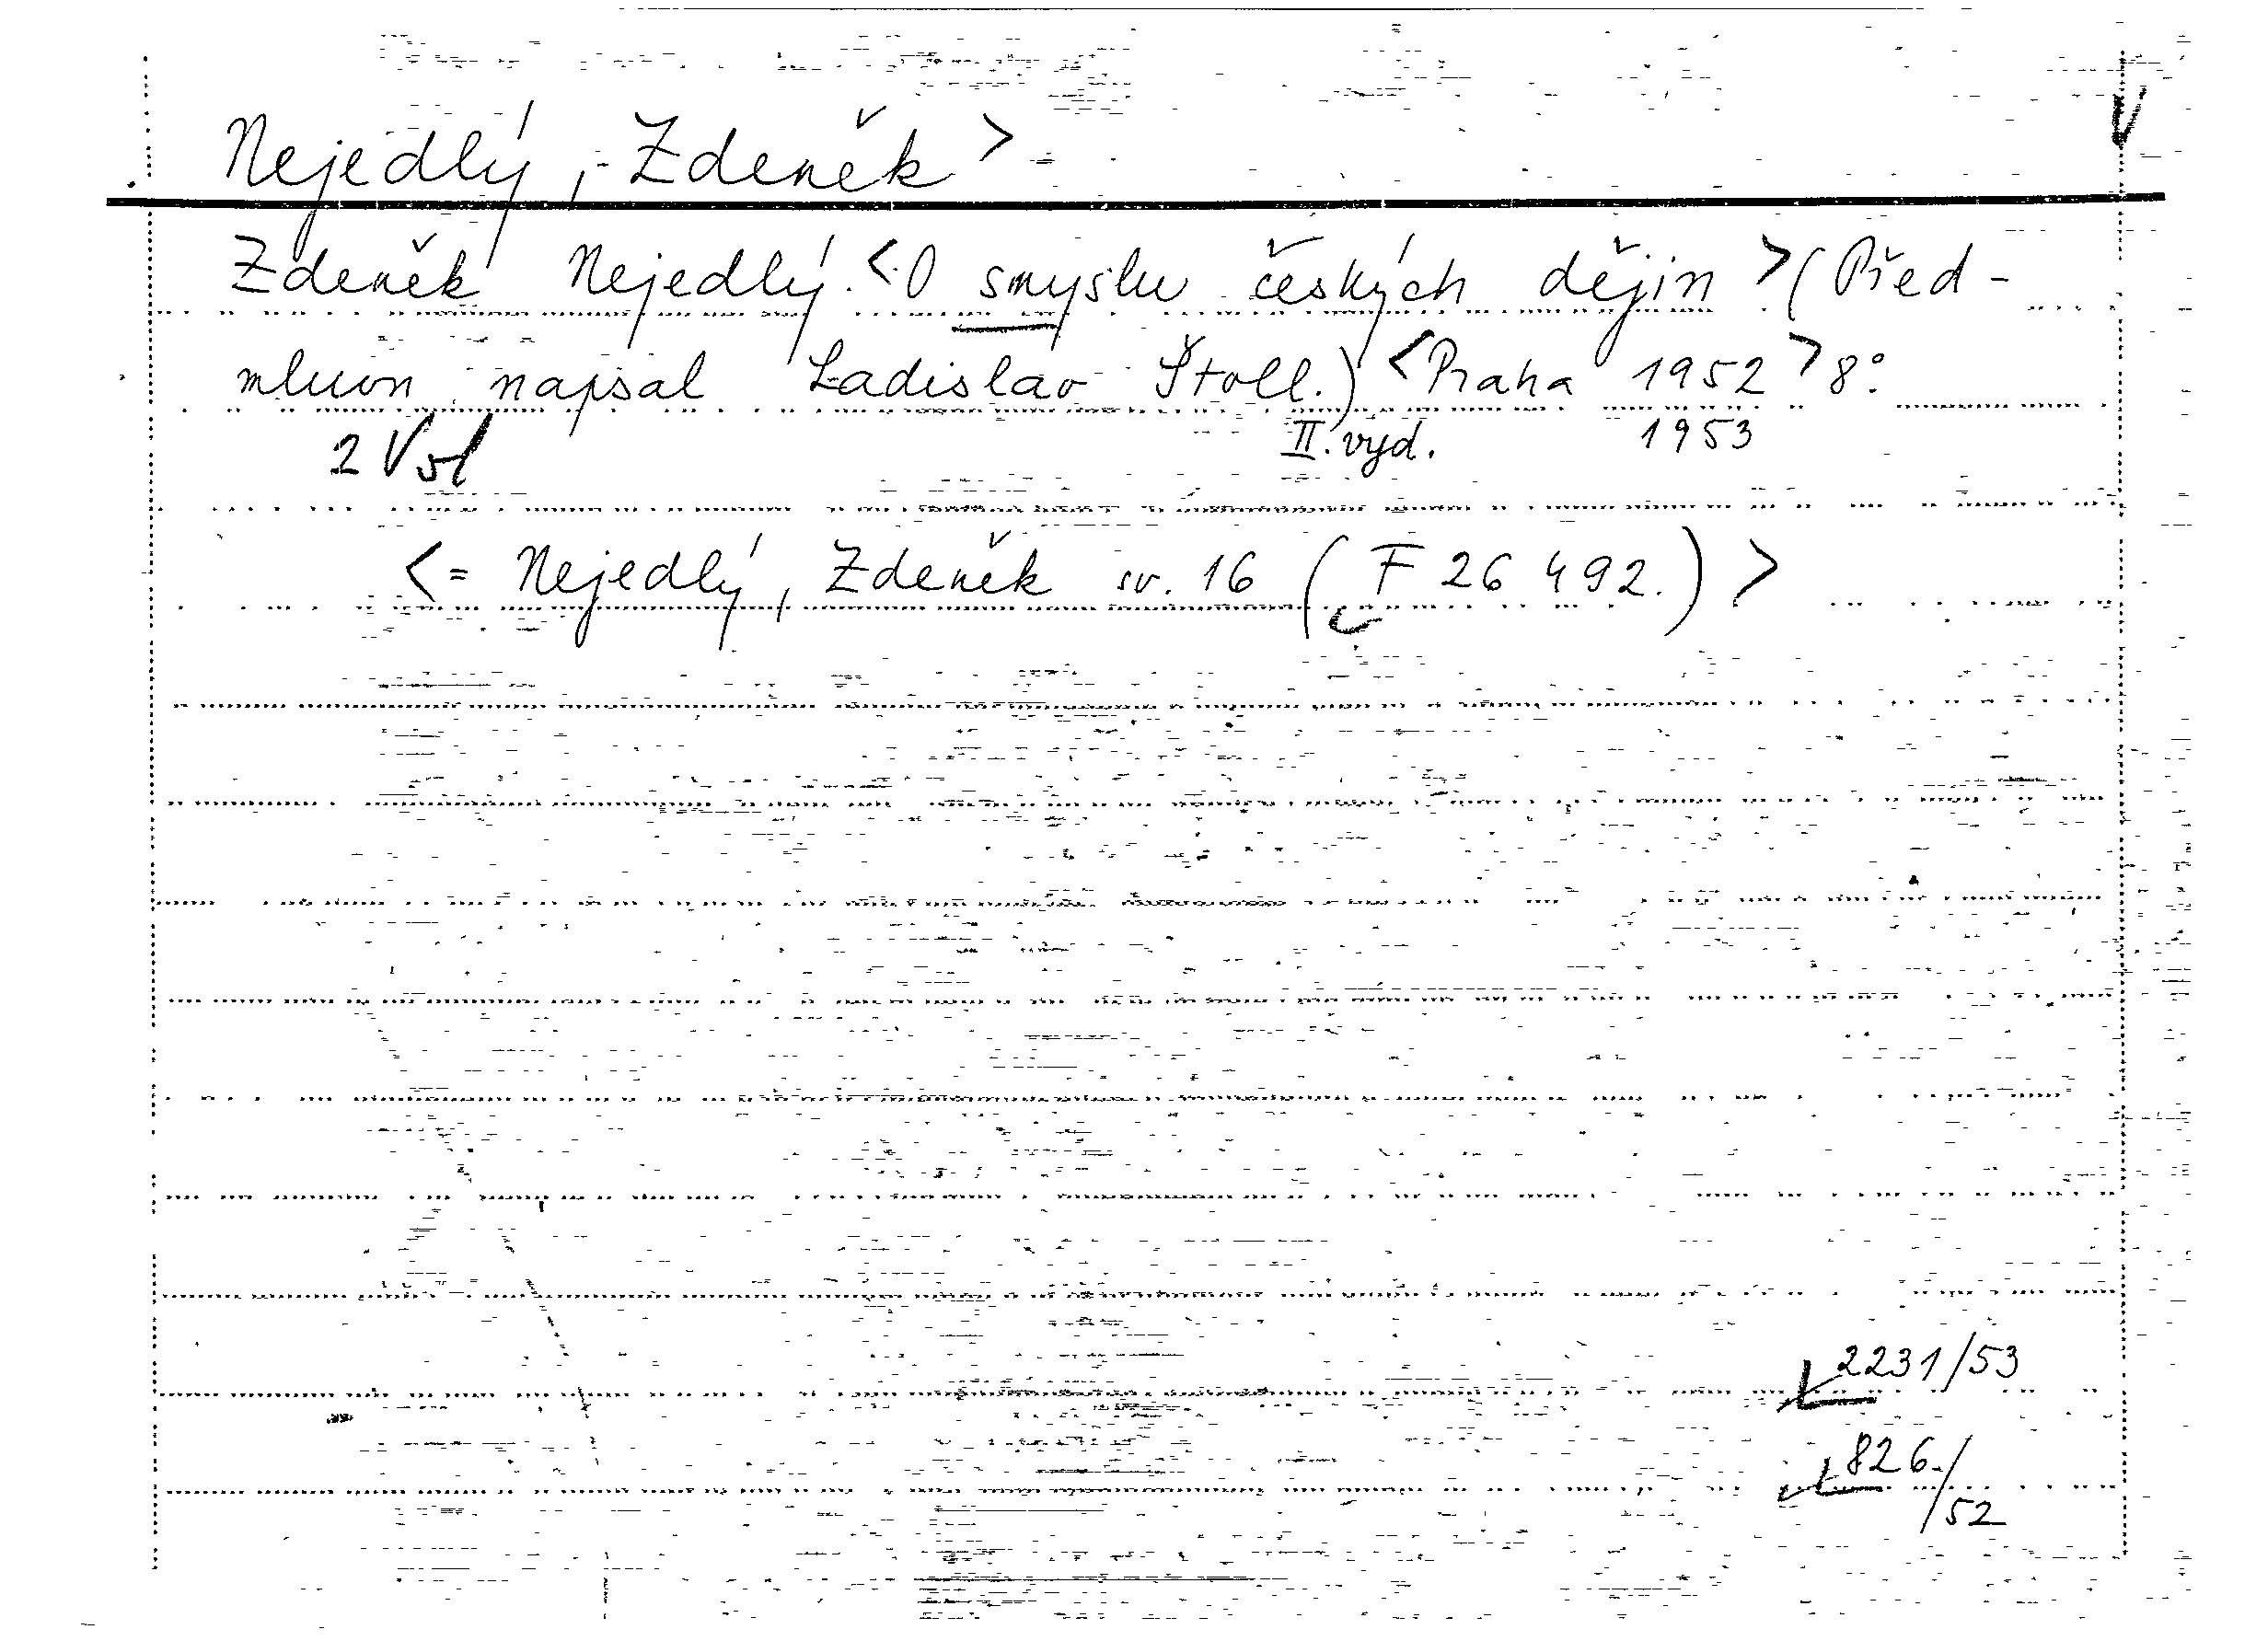 Nejedlý, Zdeněk >
Zdeněk Nejedlý. <O smyslu českých dějin > (Před-
mluvu napsal Ladislav Štoll.) <Praha 1952 > 8°.
2 Vol II. vyd. 1953
<= Nejedlý, Zdeněk sv. 16 (F 26 492.) >
2231/53
826./52